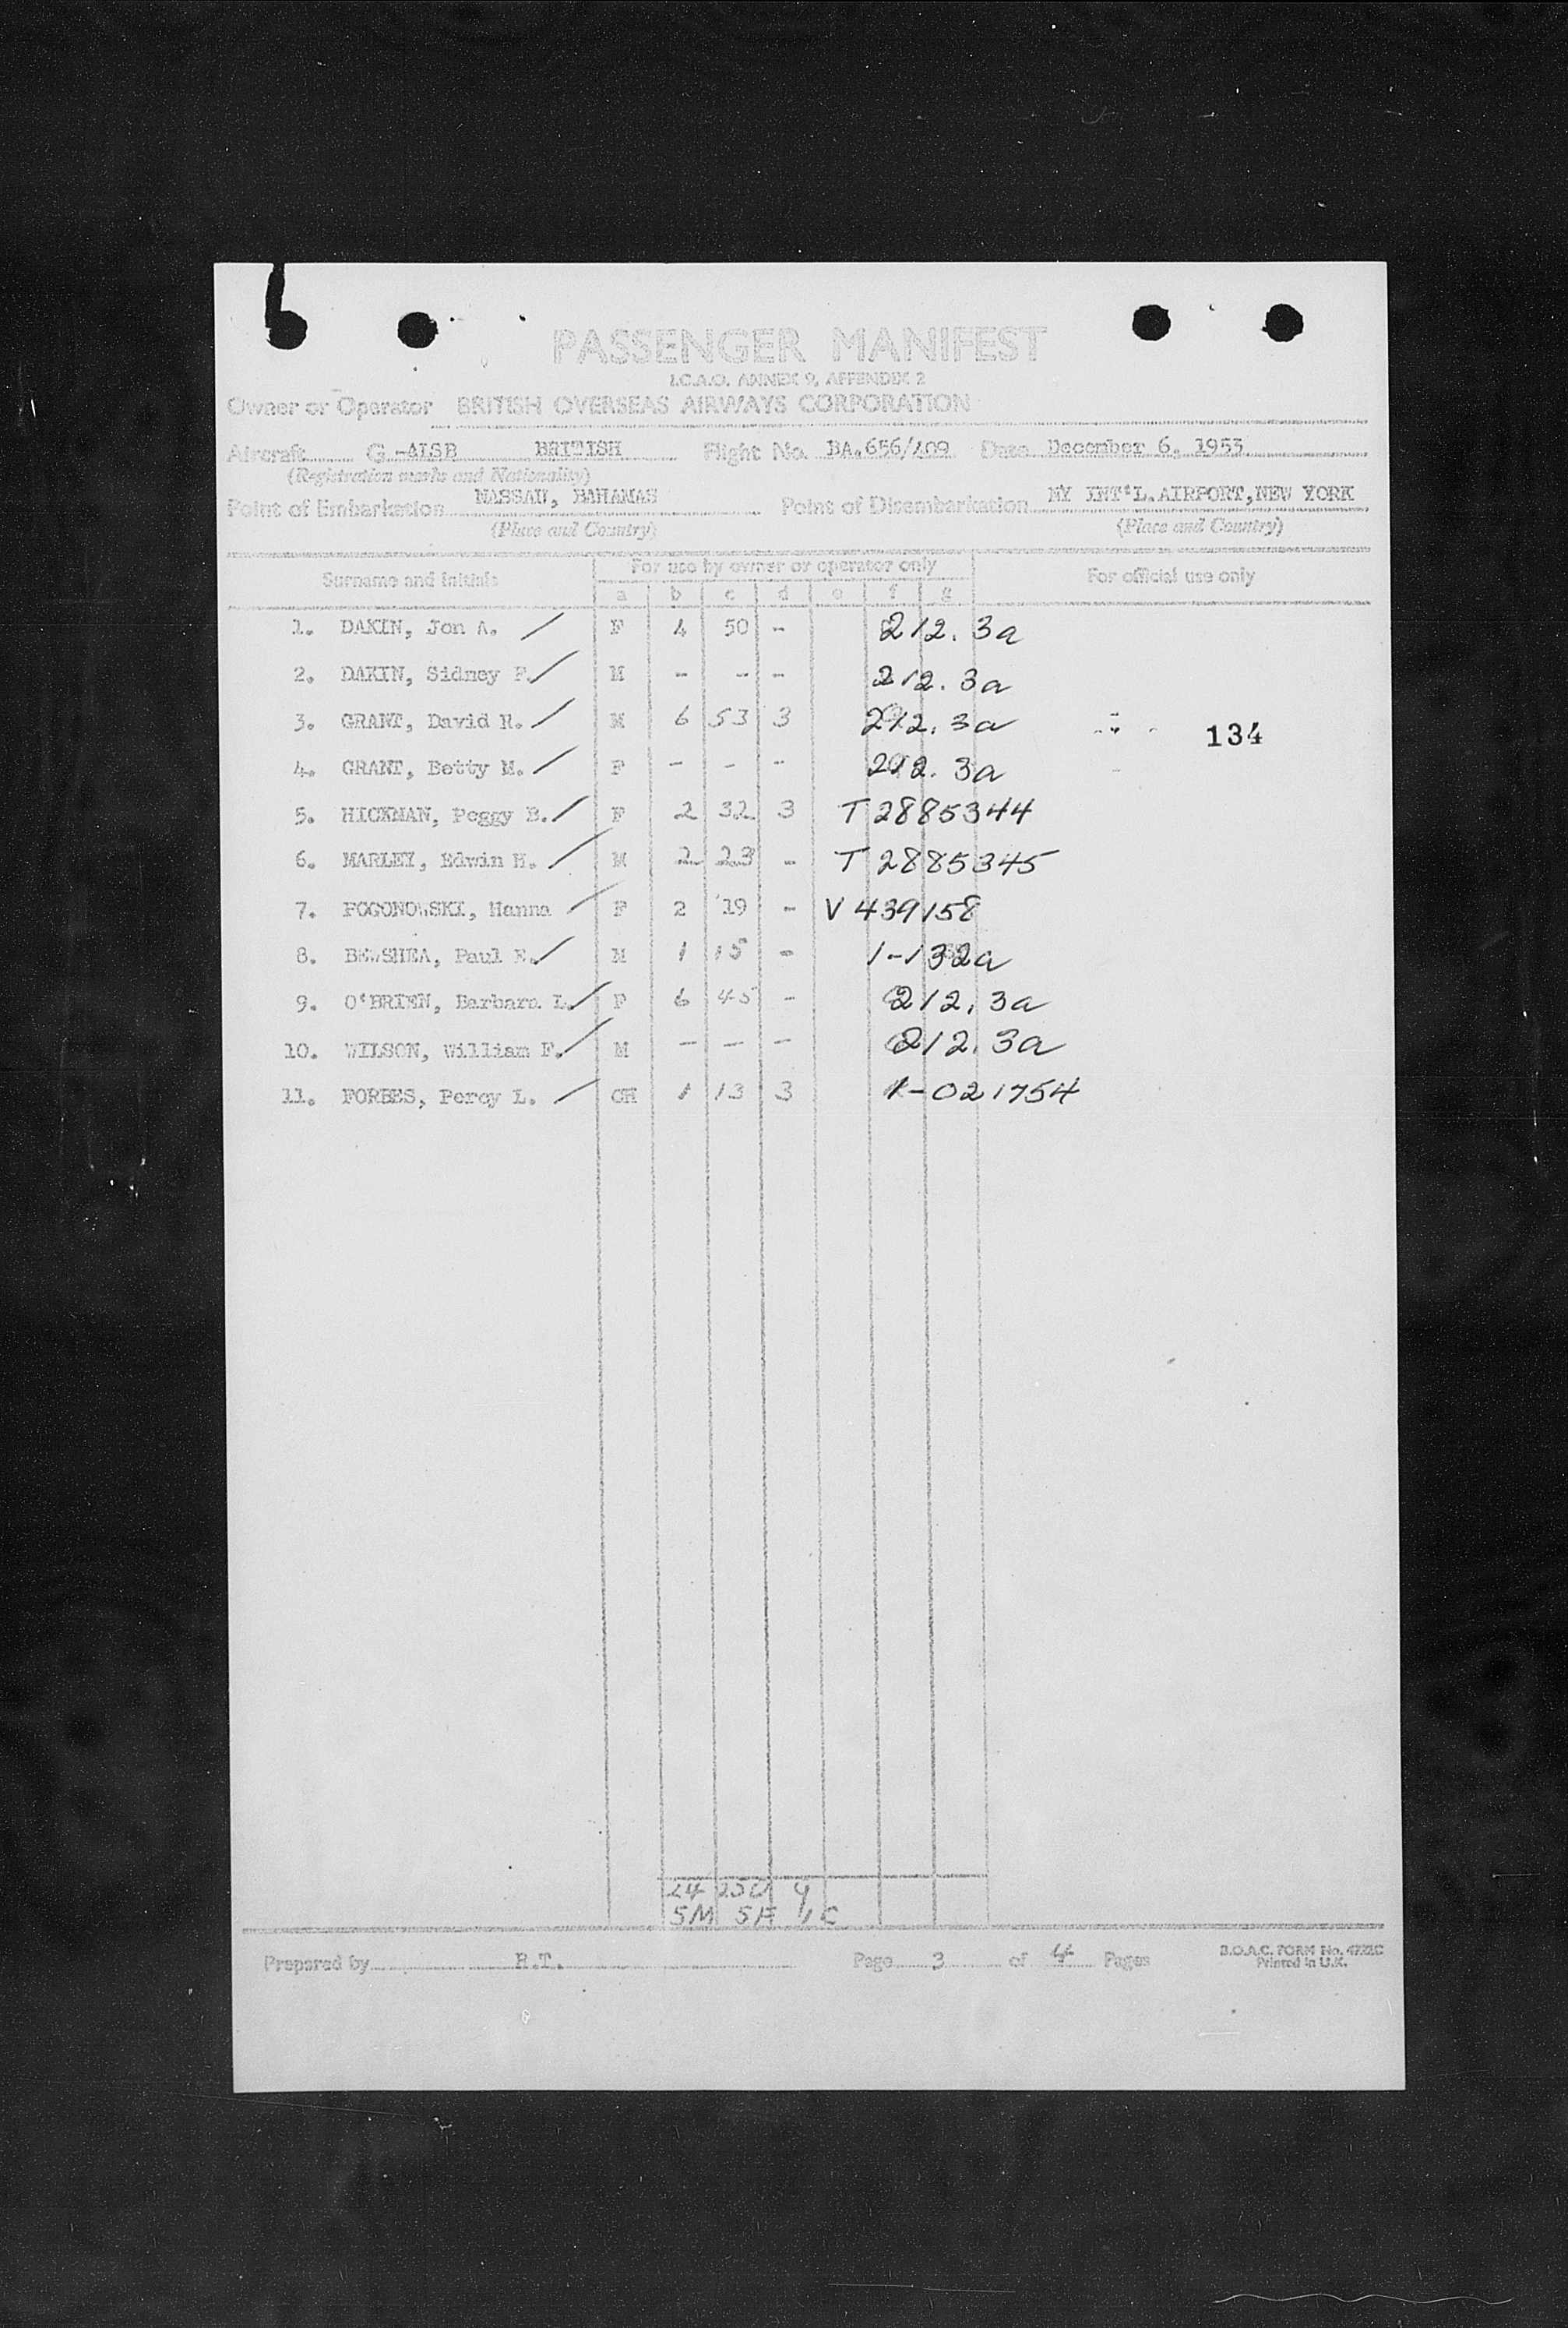 PASSENGER MANIFEST
I.C.A.O. ANNEX 9, APPENDIX 2
Owner or Operator BRITISH OVERSEAS AIRWAYS CORPORATION
Aircraft G-ALSB BRITISH Flight No. BA.656/409 Date December 6, 1953
(Registration marks and Nationality)
Point of Embarkation NASSAU, BAHAMAS Point of Disembarkation NY INT'L.AIRPORT,NEW YORK
(Place and Country) (Place and Country)
Surname and initials For use by owner or operator only For official use only
a b c d e f g
1. DAKIN, Jon A. F 4 50 - 212.3a
2. DAKIN, Sidney F. M - - - 212.3a
3. GRANT, David R. M 6 53 3 212.3a
134
4. GRANT, Betty M. F - - - 212.3a
5. HICKMAN, Peggy B. F 2 32 3 T 2885344
6. MARLEY, Edwin H. M 2 23 - T 2885345
7. POGONOWSKI, Hanna F 2 19 - V 439158
8. BEWSHEA, Paul E. M 1 15 - 1-132a
9. O'BRIEN, Barbara L. F 6 45 - 212.3a
10. WILSON, William F. M - - - 212.3a
11. FORBES, Percy L. CH 1 13 3 1-021754
24 250 9
5M 5F 1C
Prepared by R.T. Page 3 of 4 Pages
B.O.A.C. FORM No.
Printed in U.K.